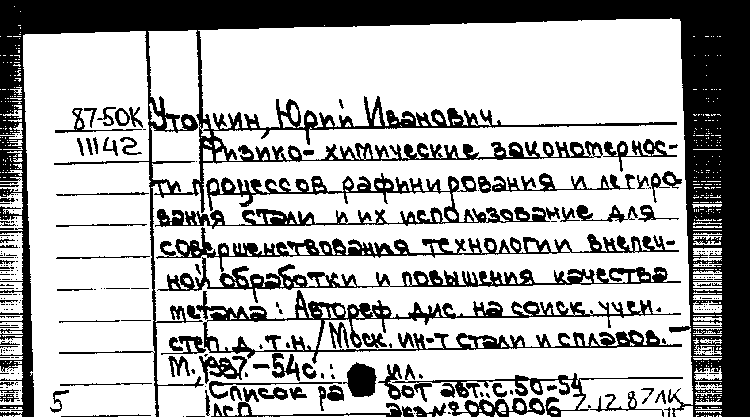 87-50К Уточкин, Юрий Иванович.
11142 Физико-химические закономернос-
ти процессов рафинирования и легиро-
вания стали и их использование для
совершенствования технологии внепеч-
ной обработки и повышения качества
металла: Автореф. дис. на соиск. учен.
степ. д.т.н. / Моск. ин-т стали и сплавов. –
М., 1987. – 54с.: ил.
Список ра бот авт.: с. 50-54
5 ДСП экз № 000006 7.12.87 ЛК